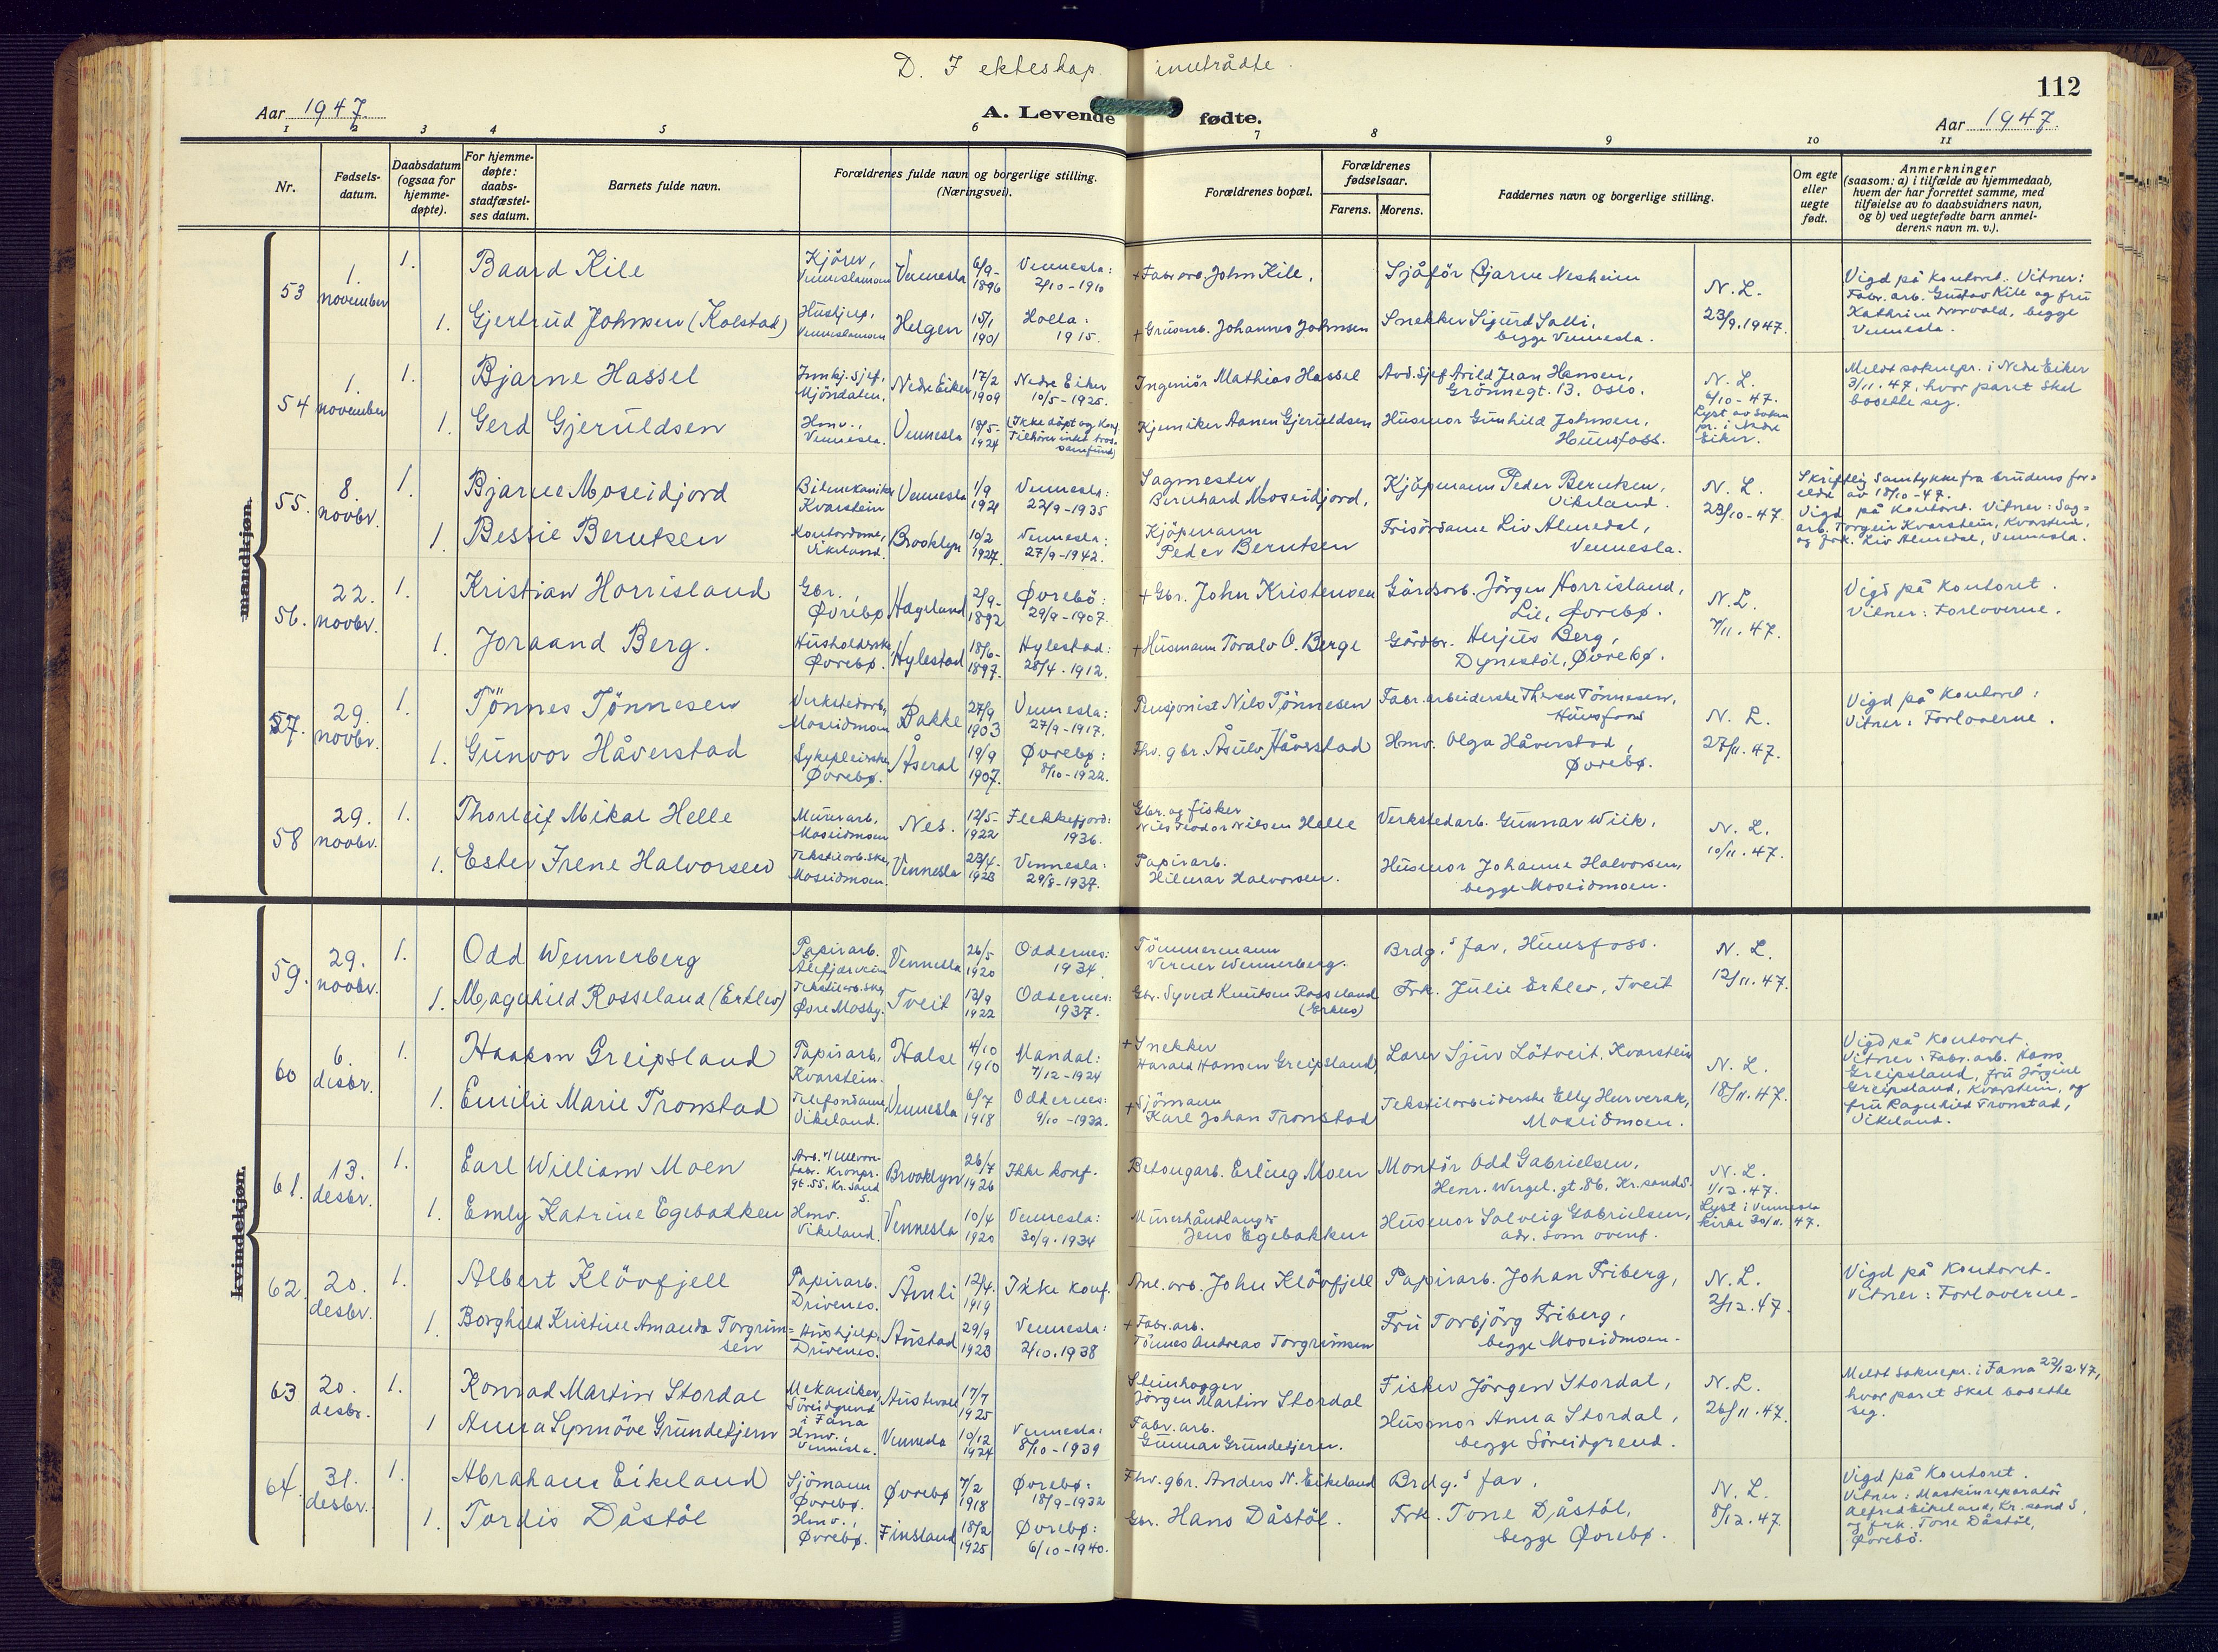 D. I ekteskap inntrådte.
112
Aar 1947. A. Levende fødte. Aar 1947.
1 2 3 4 5 6 7 8 9 10 11
Nr.
Fødsels-
datum.
Daabsdatum
(ogsaa for
hjemme-
døpte).
For hjemme-
døpte:
daabs-
stadfæstel-
ses datum.
Barnets fulde navn.
Forældrenes fulde navn og borgerlige stilling.
(Næringsvei).
Forældrenes bopæl.
Forældrenes
fødselsaar.
Farens. Morens.
Faddernes navn og borgerlige stilling.
Om egte
eller
uegte
født.
Anmerkninger
(saasom: a) i tilfælde av hjemmedaab,
hvem der har forrettet samme, med
tilføielse av to daabsvidners navn,
og b) ved uegtefødte barn anmel-
derens navn m. v.).
mandkjøn.
53 1. november
1. Baard Kile
Kjörer, Venneslamoen
Vennesla 6/9-1896
Vennesla: 2/10-1910
+ Fabr.arb. John Kile,
Sjåför Bjarne Nesheim
N. L. 23/9.1947.
Vigd på kontoret. Vitner:
Fabr. arb. Gustav Kile og fru
Kathrine Norvald, begge
Vennesla.
1. Gjertrud Johnsen (Kolstad)
Hushjelp, Venneslamoen
Helgen 15/1 1901
Holla: 1915.
+ Grubearb. Johannes Johnsen
Snekker Sigurd Salli,
begge Vennesla.
54 1. november
1. Bjarne Hassel
Innkj. sjef, Mjöndalen,
Nedre Eiker 17/2 1909
Nedre Eiker 10/5-1925.
Ingeniör Mathias Hassel
Avd. sjef Arild Jean Hansen,
Grönnegt. 13. Oslo.
N. L. 6/10-47.
Lyst av sokn
pr. i Nedre
Eiker.
Meldt soknepr. i Nedre Eiker
3/11.47, hvor paret skal
bosette seg.
1. Gerd Gjeruldsen
Hmv., Vennesla.
Vennesla 18/5-1924
(Ikke döpt og konf.
Tilhörer intet tros-
samfund)
Kjemiker Aanen Gjeruldsen
Husmor Gunhild Johnsen,
Hunsfoss.
55. 8. novbr.
1. Bjarne Moseidjord
Bilmekaniker Kvarstein
Vennesla 1/9 1921
Vennesla: 22/9-1935
Sagmester
Bernhard Moseidjord,
Kjöpmann Peder Berntsen,
Vikeland.
N. L. 23/10-47
Skriftlig samtykke fra brudens for-
eldre av 18/10-47.
Vigd på kontoret. Vitner: Sag-
arb. Torgeir Kvarstein, Kvarstein,
og frk. Liv Almedal, Vennesla.
1. Bessie Berntsen
Kontordame, Vikeland.
Brooklyn 10/2 1927.
Vennesla: 27/9-1942.
Kjöpmann
Peder Berntsen
Frisördame Liv Almedal,
Vennesla.
56. 22. novbr.
1. Kristian Horrisland
Gbr., Øvrebø
Hægeland 2/9-1892
Øvrebö: 29/9-1907.
+ Gbr. John Kristensen
Gårdsarb. Jörgen Horrisland,
Lie, Øvrebø.
N.L. 7/11.47.
Vigd på kontoret.
Vitner: Forloverne.
1. Joraand Berg.
Husholderske, Øvrebø.
Hylestad 18/6-1897.
Hylestad: 28/4.1912.
+ Husmann Toralv O. Berge
Gårdbr. Herjus Berg,
Dynestöl, Øvrebø.
57. 29. novbr.
1. Tönnes Tönnesen
Verkstedarb., Moseidmoen
Bakke 27/9 1903
Vennesla: 27/9-1917.
Pensjonist Nils Tönnesen
Fabr. arbeiderske Theresa Tönnesen,
Hunsfoss
N. L. 27/11.47.
Vigd på kontoret.
Vitner: Forloverne.
1. Gunvor Håverstad
Sykepleierske Øvrebø.
Åseral 19/9 1907.
Øvrebø: 8/10-1922.
Fhv. gbr. Åsulv Håverstad
Hmv. Olga Håverstad,
Øvrebø.
58 29. novbr.
1. Thorleif Mikal Helle
Murerarb., Moseidmoen
Nes. 12/5-1922
Flekkefjord: 1936.
Gbr. og fisker
Nils Teodor Nilsen Helle
Verkstedarb. Gunnar Wiik.
N. L. 10/11.47.
1. Ester Irene Halvorsen
Tekstilarb.ske, Moseidmoen.
Vennesla 23/4-1923
Vennesla: 29/8-1937.
Papirarb.
Hilmar Halvorsen.
Husmor Johanne Halvorsen,
begge Moseidmoen.
kvindekjøn.
59. 29. novbr.
1. Odd Wennerberg
Papirarb.
Vennesla 26/5 1920
Oddernes: 1934.
Tömmermann
Verner Wennerberg.
Brdg.s far, Hunsfoss.
N. L. 12/11.47.
1. Magnhild Rosseland (Erklev)
Tekstilarb.ske, Øvre Mosby.
Tveit 13/9 1922
Oddernes: 1937.
Gbr. Syvert Knutsen Rosseland
Frk. Julie Erklev, Tveit
60 6. desbr.
1. Haakon Greipsland
Papirarb., Kvarstein.
Halse 4/10 1910
Mandal: 7/12-1924
+ Snekker
Harald Hansen Greipsland,
Lærer Sjur Låtveit, Kvarstein
N. L. 18/11.47.
Vigd på kontoret.
Vitner: Fabr. arb. Hans
Greipsland, fru Jörgine
Greipsland, Kvarstein, og
fru Ragnhild Tronstad,
Vikeland.
1. Emilie Marie Tronstad
Telefondame, Vikeland.
Vennesla 6/7 1918
Oddernes: 9/10-1932.
+ Sjömann
Karl Johan Tronstad
Tekstilarbeiderske Elly Hurverak,
Moseidmoen.
61. 13. desbr.
1. Earl William Moen
Kronpr. gt. 55. Kr.sand S.
Brooklyn 26/7 1926
Ikke konf.
Betongarb. Erling Moen
Montör Odd Gabrielsen,
Henr. Wergel. gt. 86. Kr.sand S.
N. L. 1/12.47.
Lyst i Vennesla
kirke 30/11.47.
1. Emly Katrine Egebakken
Hmv. Vikeland.
Vennesla 10/4 1920
Vennesla: 30/9.1934
Murerhåndlanger
Jens Egebakken
Husmor Solveig Gabrielsen,
adr. som ovenf.
62. 20. desbr.
1. Albert Klövfjell
Papirarb. Drivenes.
Åmli 12/4. 1919
Ikke konf.
Anl. arb. John Klövfjell
Papirarb. Johan Friberg,
N. L. 2/12.47.
Vigd på kontoret.
Vitner: Forloverne.
1. Borghild Kristine Amanda Torgrim-
sen
Hushjelp, Drivenes.
Austad 29/9 1923
Vennesla: 2/10.1938
+ Fabr. arb.
Tönnes Andreas Torgrimsen
Fru Torbjörg Friberg,
begge Moseidmoen.
63 20. desbr.
1. Konrad Martin Stordal
Mekaniker, Söreidgrend i Fana
Austevoll 17/7 1925
Steinhogger
Jörgen Martin Stordal
Fisker Jörgen Stordal,
N. L. 26/11.47.
Meldt soknepr. i Fana 22/12.47,
hvor paret skal bosette
seg.
1 Anna Synnöve Grundetjern
Hmv., Vennesla.
Vennesla 10/12 1924
Vennesla: 8/10-1939
Fabr. arb.
Gunnar Grundetjern.
Husmor Anna Stordal,
begge Söreidgrend.
64. 31. desbr.
1. Abraham Eikeland
Sjömann Øvrebø.
Øvrebø 7/2 1918
Øvrebø: 18/9-1932
Fhv. gbr. Anders N. Eikeland
Brdg.s far,
N. L. 8/12.47.
Vigd på kontoret.
Vitner: Maskinreparatör
Alfred Eikeland, Kr.sand S,
og frk. Tone Dåstöl,
Øvrebö.
1. Tordis Dåstöl
Hmv., Øvrebø.
Finsland 18/2 1925
Øvrebø: 6/10-1940.
Gbr. Hans Dåstöl.
Frk. Tone Dåstöl,
begge Øvrebø.